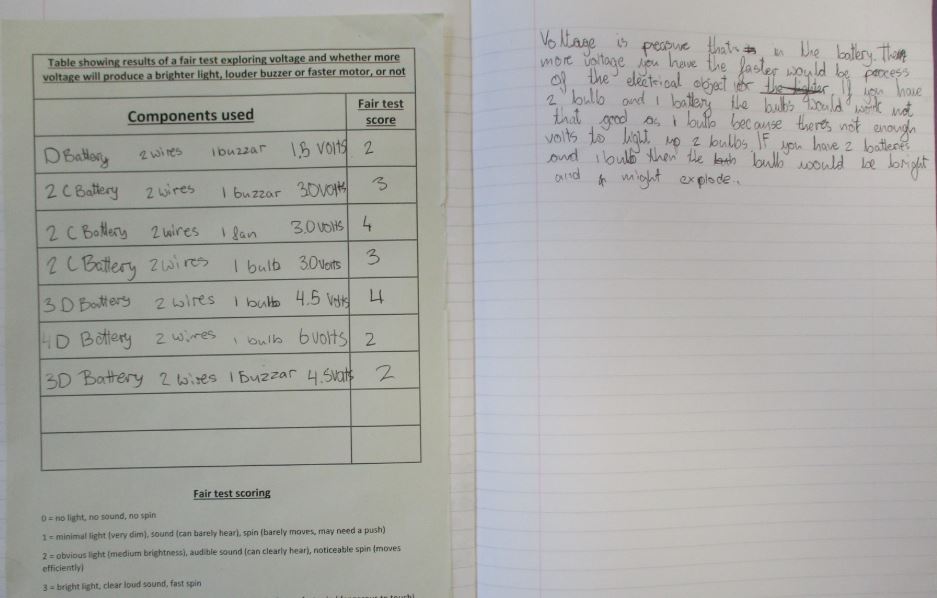 Table showing results of a fair test exploring voltage and whether more
voltage will produce a brighter light, louder buzzer or faster motor, or not
Components used
Fair test
score
D Battery 2 wires 1 buzzar 1,5 volts 2
2 C Battery 2 wires 1 buzzar 3.0 volts 3
2 C Battery 2 wires 1 fan 3.0 volts 4
2 C Battery 2 wires 1 bulb 3.0 volts 3
3 D Battery 2 wires 1 bulb 4.5 volts 4
4 D Battery 2 wires 1 bulb 6 volts 2
3D Battery 2 wires 1 Buzzar 4.5 volts 2
Fair test scoring
0 = no light, no sound, no spin
1 = minimal light (very dim), sound (can barely hear), spin (barely moves, may need a push)
2 = obvious light (medium brightness), audible sound (can clearly hear), noticeable spin (moves
efficiently)
3 = bright light, clear loud sound, fast spin
Voltage is preasure that's in the battery. The
more voltage you have the faster would be process
of the electrical object or the lighter. If you have
2 bulb and 1 battery the bulbs would work not
that good as 1 bulb because theres not enough
volts to light up 2 bulbs. If you have 2 batteries
and 1 bulb then the bulb would be bright
and might explode.